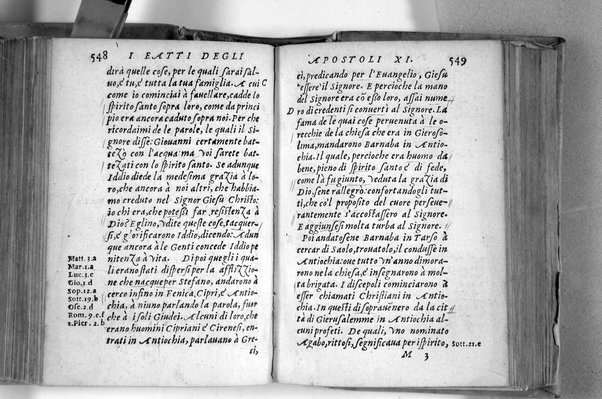 548 I FATTI DEGLI
dirà quelle cose, per le quali sarai sal-
uo, e tu, e tutta la tua famiglia. A cui C
come io cominciai à fauellare, cadde lo
spirito santo sopra loro, come da princi
pio era ancora caduto sopra noi. Per che
ricordaimi de le parole, le quali il Si-
gnore disse: Giouanni certamente bat-
tezò con l'acqua ma voi sarete bat-
tezati con lo spirito santo. Se adunque
Iddio diede la medesima grazia à lo-
ro, che ancora à noi altri, che habbia-
mo creduto nel Signor Giesu Christo:
io chi era, che potessi far resistenza à
Dio? Eglino, vdite queste cose, tacquer-
si, e glorificarono Iddio, dicendo: Adun
que ancora à le Genti concede Iddio pe
Matt. 3.a nitenza à vita. Di poi quegli i qua-
Mar. 1.a li erano stati dispersi per la afflizzio-
Luc. 3.c ne che nacque per Stefano, andarono à
Gio. 1 d cerco insino in Fenica, Cipri, e Antio-
Sop. 12.a
Sott. 19.b chia, à niuno parlando la parola, fuor
Ose. 2 d che à i soli Giudei. Alcuni di loro, che
Rom. 9.e.f erano huomini Cipriani e Cirenesi, en-
1. Pier. 2. b trati in Antiochia, parlauano à Gre-
si,
APOSTOLI XI. 549
ci, predicando per l'Euangelio, Giesu
essere il Signore. E percioche la mano
del Signore era cō esso loro, assai nume
D ro di credenti si conuertì al Signore. La
fama de le quai cose peruenuta à le o-
recchie de la chiesa che era in Gieroso-
lima, mandarono Barnaba in Antio-
chia. Il quale, percioche era huomo da
bene, pieno di spirito santo e di fede,
come là fu giunto, veduta la grazia di
Dio, sene rallegrò: confortando gli tut-
ti, che col proposito del cuore perseue-
rantemente s'accostassero al Signore.
E aggiunsesi molta turba al Signore.
Poi andatosene Barnaba in Tarso à
cercar di Saolo, trouatolo, il condusse in
Antiochia: oue tutto vn'anno dimora-
rono ne la chiesa, e insegnarono à mol-
ta brigata. I discepoli cominciarono à
esser chiamati Christiani in Antio-
chia. In questi dì soprauennero da la cit
tà di Gierusalemme in Antiochia al-
cuni profeti. De quali, vno nominato
Agabo, rittosi, significaua per ispirito, Sott. 21.c
M 3